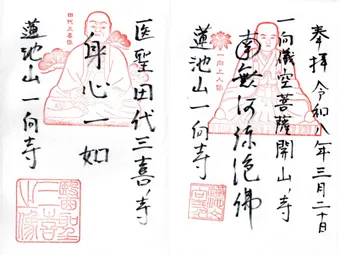 奉拝 令和八年三月二十日
一向儀空菩薩開山ノ寺
南無阿弥陀佛
蓮池山一向寺
一向上人像
医聖田代三喜ノ寺
身心一如
蓮池山一向寺
田代三喜像
醫聖
三喜
之像